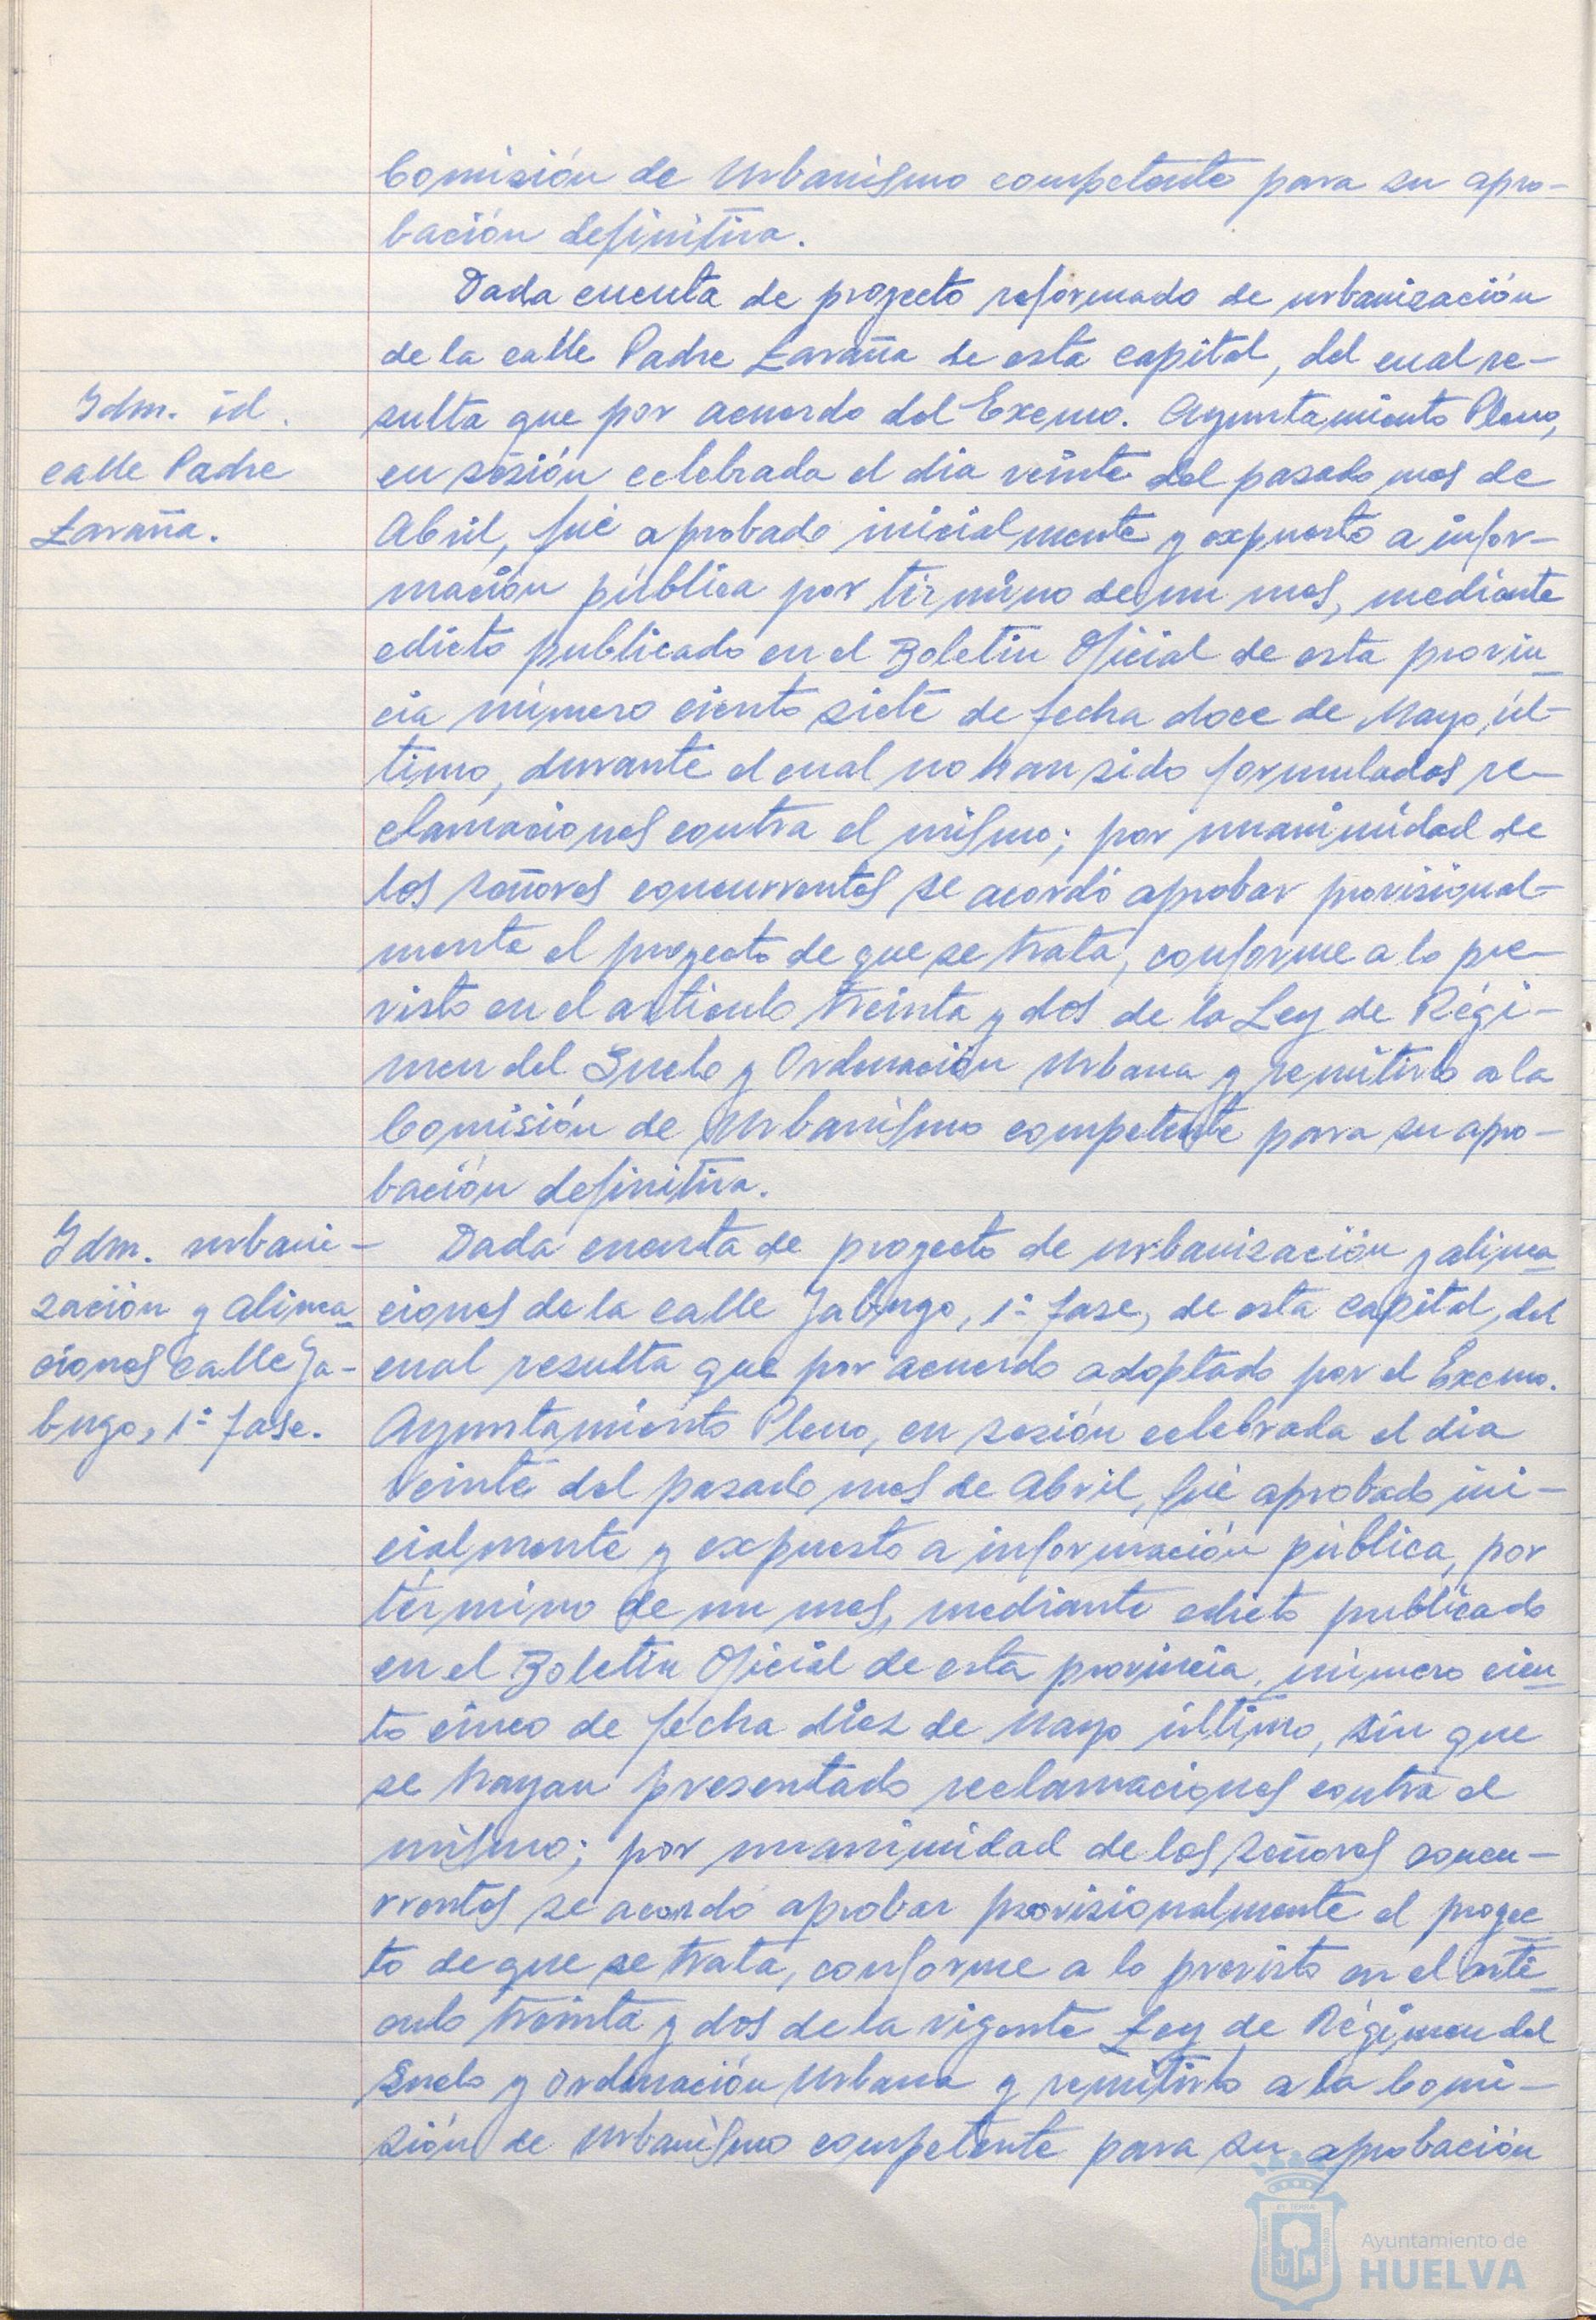 Comisión de Urbanismo competente para su apro-
bación definitiva.
Dada cuenta de proyecto reformado de urbanización
de la calle Padre Laraña de esta capital, del cual re-
Idm. id.
calle Padre
Laraña.
sulta que por acuerdo del Excmo. Ayuntamiento Pleno,
en sesión celebrada el dia veinte del pasado mes de
Abril, fué aprobado inicialmente y expuesto a infor-
mación pública por término de un mes, mediante
edicto publicado en el Boletin Oficial de esta provin-
cia número ciento siete de fecha doce de Mayo úl-
timo, durante el cual no han sido formulados re-
clamaciones contra el mismo; por unanimidad de
los señores concurrentes se acordó aprobar provisional-
mente el proyecto de que se trata, conforme a lo pre-
visto en el articulo treinta y dos de la Ley de Régi-
men del Suelo y Ordenación Urbana y remitirlo a la
Comisión de Urbanismo competente para su apro-
bación definitiva.
Idm. urbani-
zación y alinea-
ciones calle Ja-
bugo, 1ª fase.
Dada cuenta de proyecto de urbanización y alinea-
ciones de la calle Jabugo, 1ª fase, de esta capital, del
cual resulta que por acuerdo adoptado por el Excmo.
Ayuntamiento Pleno, en sesión celebrada el dia
veinte del pasado mes de Abril, fué aprobado ini-
cialmente y expuesto a información pública, por
término de un mes, mediante edicto publicado
en el Boletin Oficial de esta provincia, número cien-
to cinco de fecha diez de Mayo último, sin que
se hayan presentado reclamaciones contra el
mismo; por unanimidad de los señores concu-
rrentes se acordó aprobar provisionalmente el proyec-
to de que se trata, conforme a lo previsto en el arti-
culo treinta y dos de la vigente Ley de Régimen del
Suelo y Ordenación Urbana y remitirlo a la Comi-
sión de Urbanismo competente para su aprobación
Ayuntamiento de
HUELVA